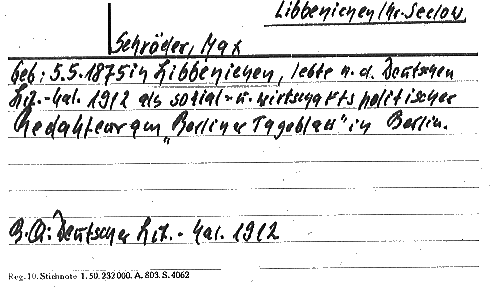 Libbenichen/Kr. Seelow
Schröder, Max
Geb: 5.5.1875 in Libbenichen, lebte n. d. Deutschen
Lit.-Kal. 1912 als sozial- u. wirtschaftspolitischer
Redakteur am "Berliner Tageblatt" in Berlin.
B.A: Deutscher Lit.-Kal. 1912
Reg. 10. Stichnote 1. 50. 232000. A. 803. S. 4062